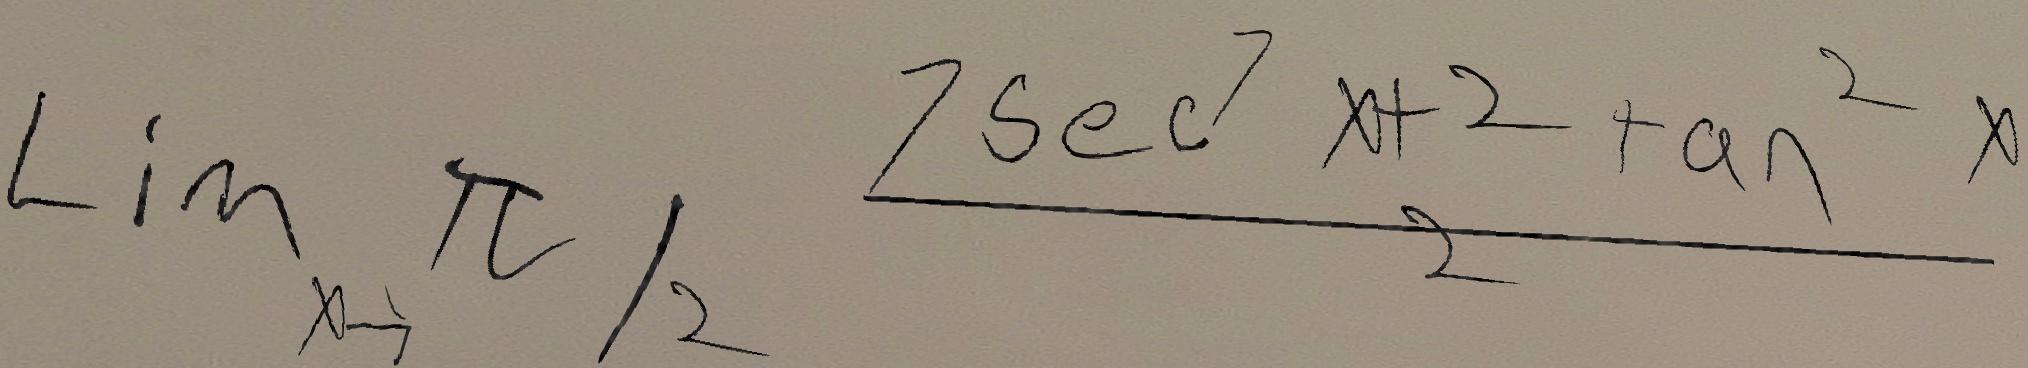 Lim x→ π/2 (7 sec^7 x + 2 tan^2 x) / 2